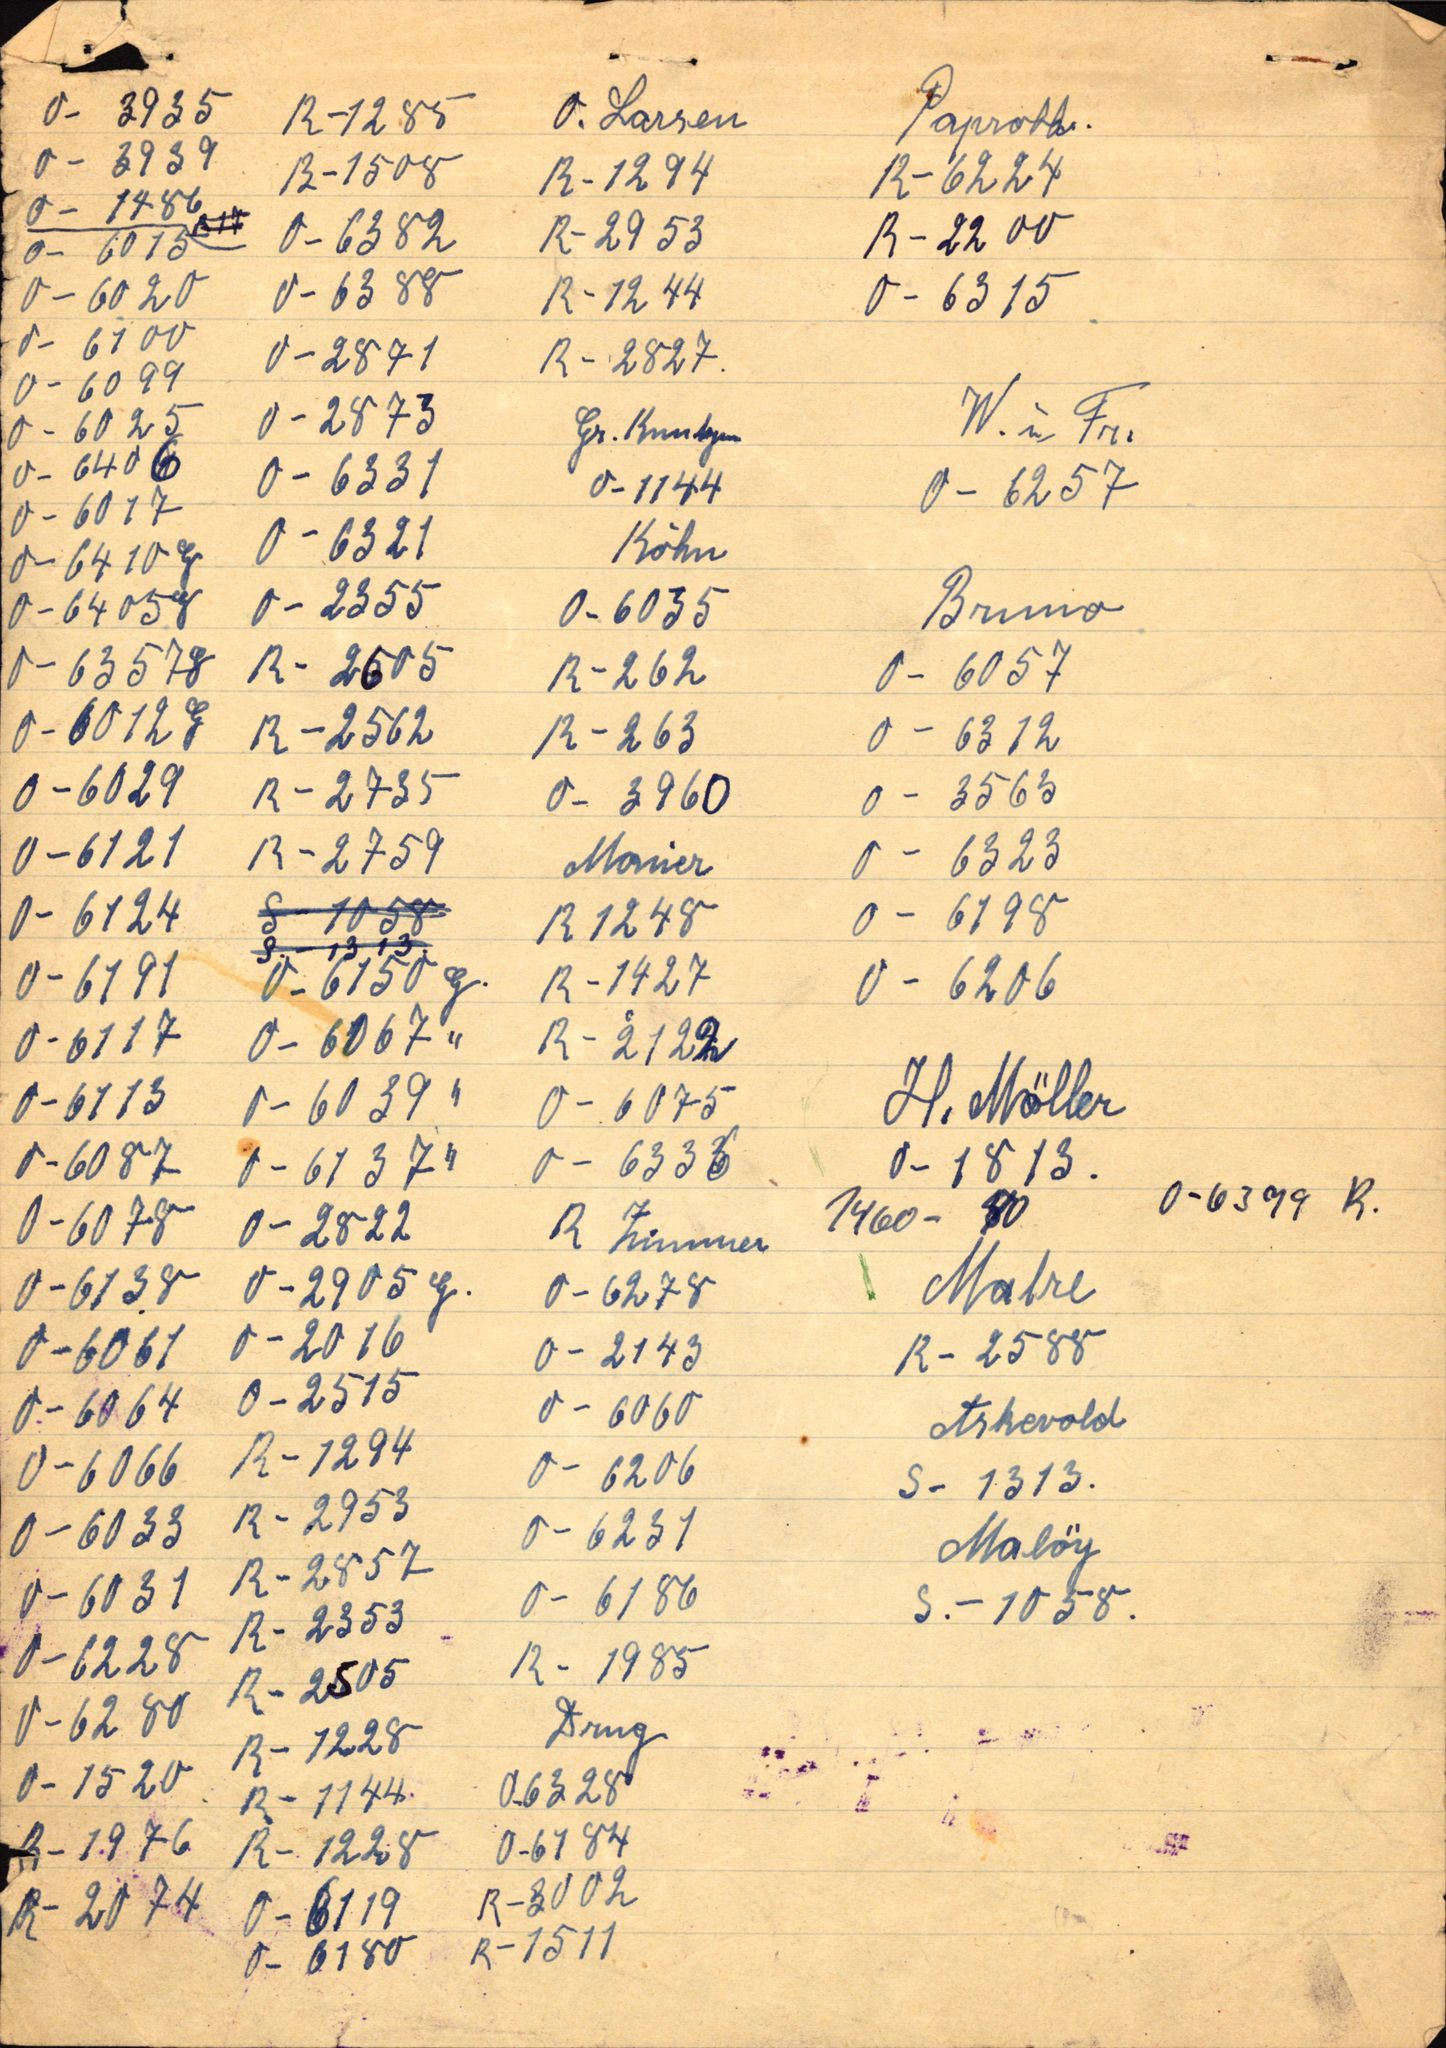 O- 3935
O- 3939
O- 1486
O- 6015
O-6020
O- 6100
O- 6099
O- 6025
O- 6406
O- 6017
O-6410 g
O-6405 g
O-6357 g
O-6012 g
O-6029
O-6121
O-6124
O-6191
O-6117
O-6113
O-6087
O-6078
O-6138
O-6061
O-6064
O-6066
O-6033
O-6031
O-6228
O-6280
O-1520
R-1976
R-2074
R-1285
R-1508
O-6382
O-6388
O-2871
O-2873
O-6331
O-6321
O-2355
R-2605
R-2562
R-2735
R-2759
S-1058
S.-1313.
O-6150 g.
O-6067 "
O-6039 "
O-6137 "
O-2822
O-2905 g.
O-2016
O-2515
R-1294
R-2953
R-2857
R-2353
R-2505
R-1228
R-1144.
R-1228
O-6119
O-6180
O. Larsen
R-1294
R-2953
R-1244
R-2827.
Gr.
O-1144
Köhn
O-6035
R-262
R-263
O-3960
Monier
R 1248
R-1427
R-2122
O-6075
O-6336
R Zimmer
O-6278
O-2143
O-6060
O-6206
O-6231
O-6186
R-1985
Drug
O-6328
O-6184
R-3002
R-1511
Paproth.
R-6224
R-2200
O-6315
W. in Fr.
O-6257
Bruno
O-6057
O-6312
O-3563
O-6323
O-6198
O-6206
H. Möller
O-1813.
1460-
O-6399 R.
Matre
R-2588
Askevold
S-1313.
Malöy
S.-1058.